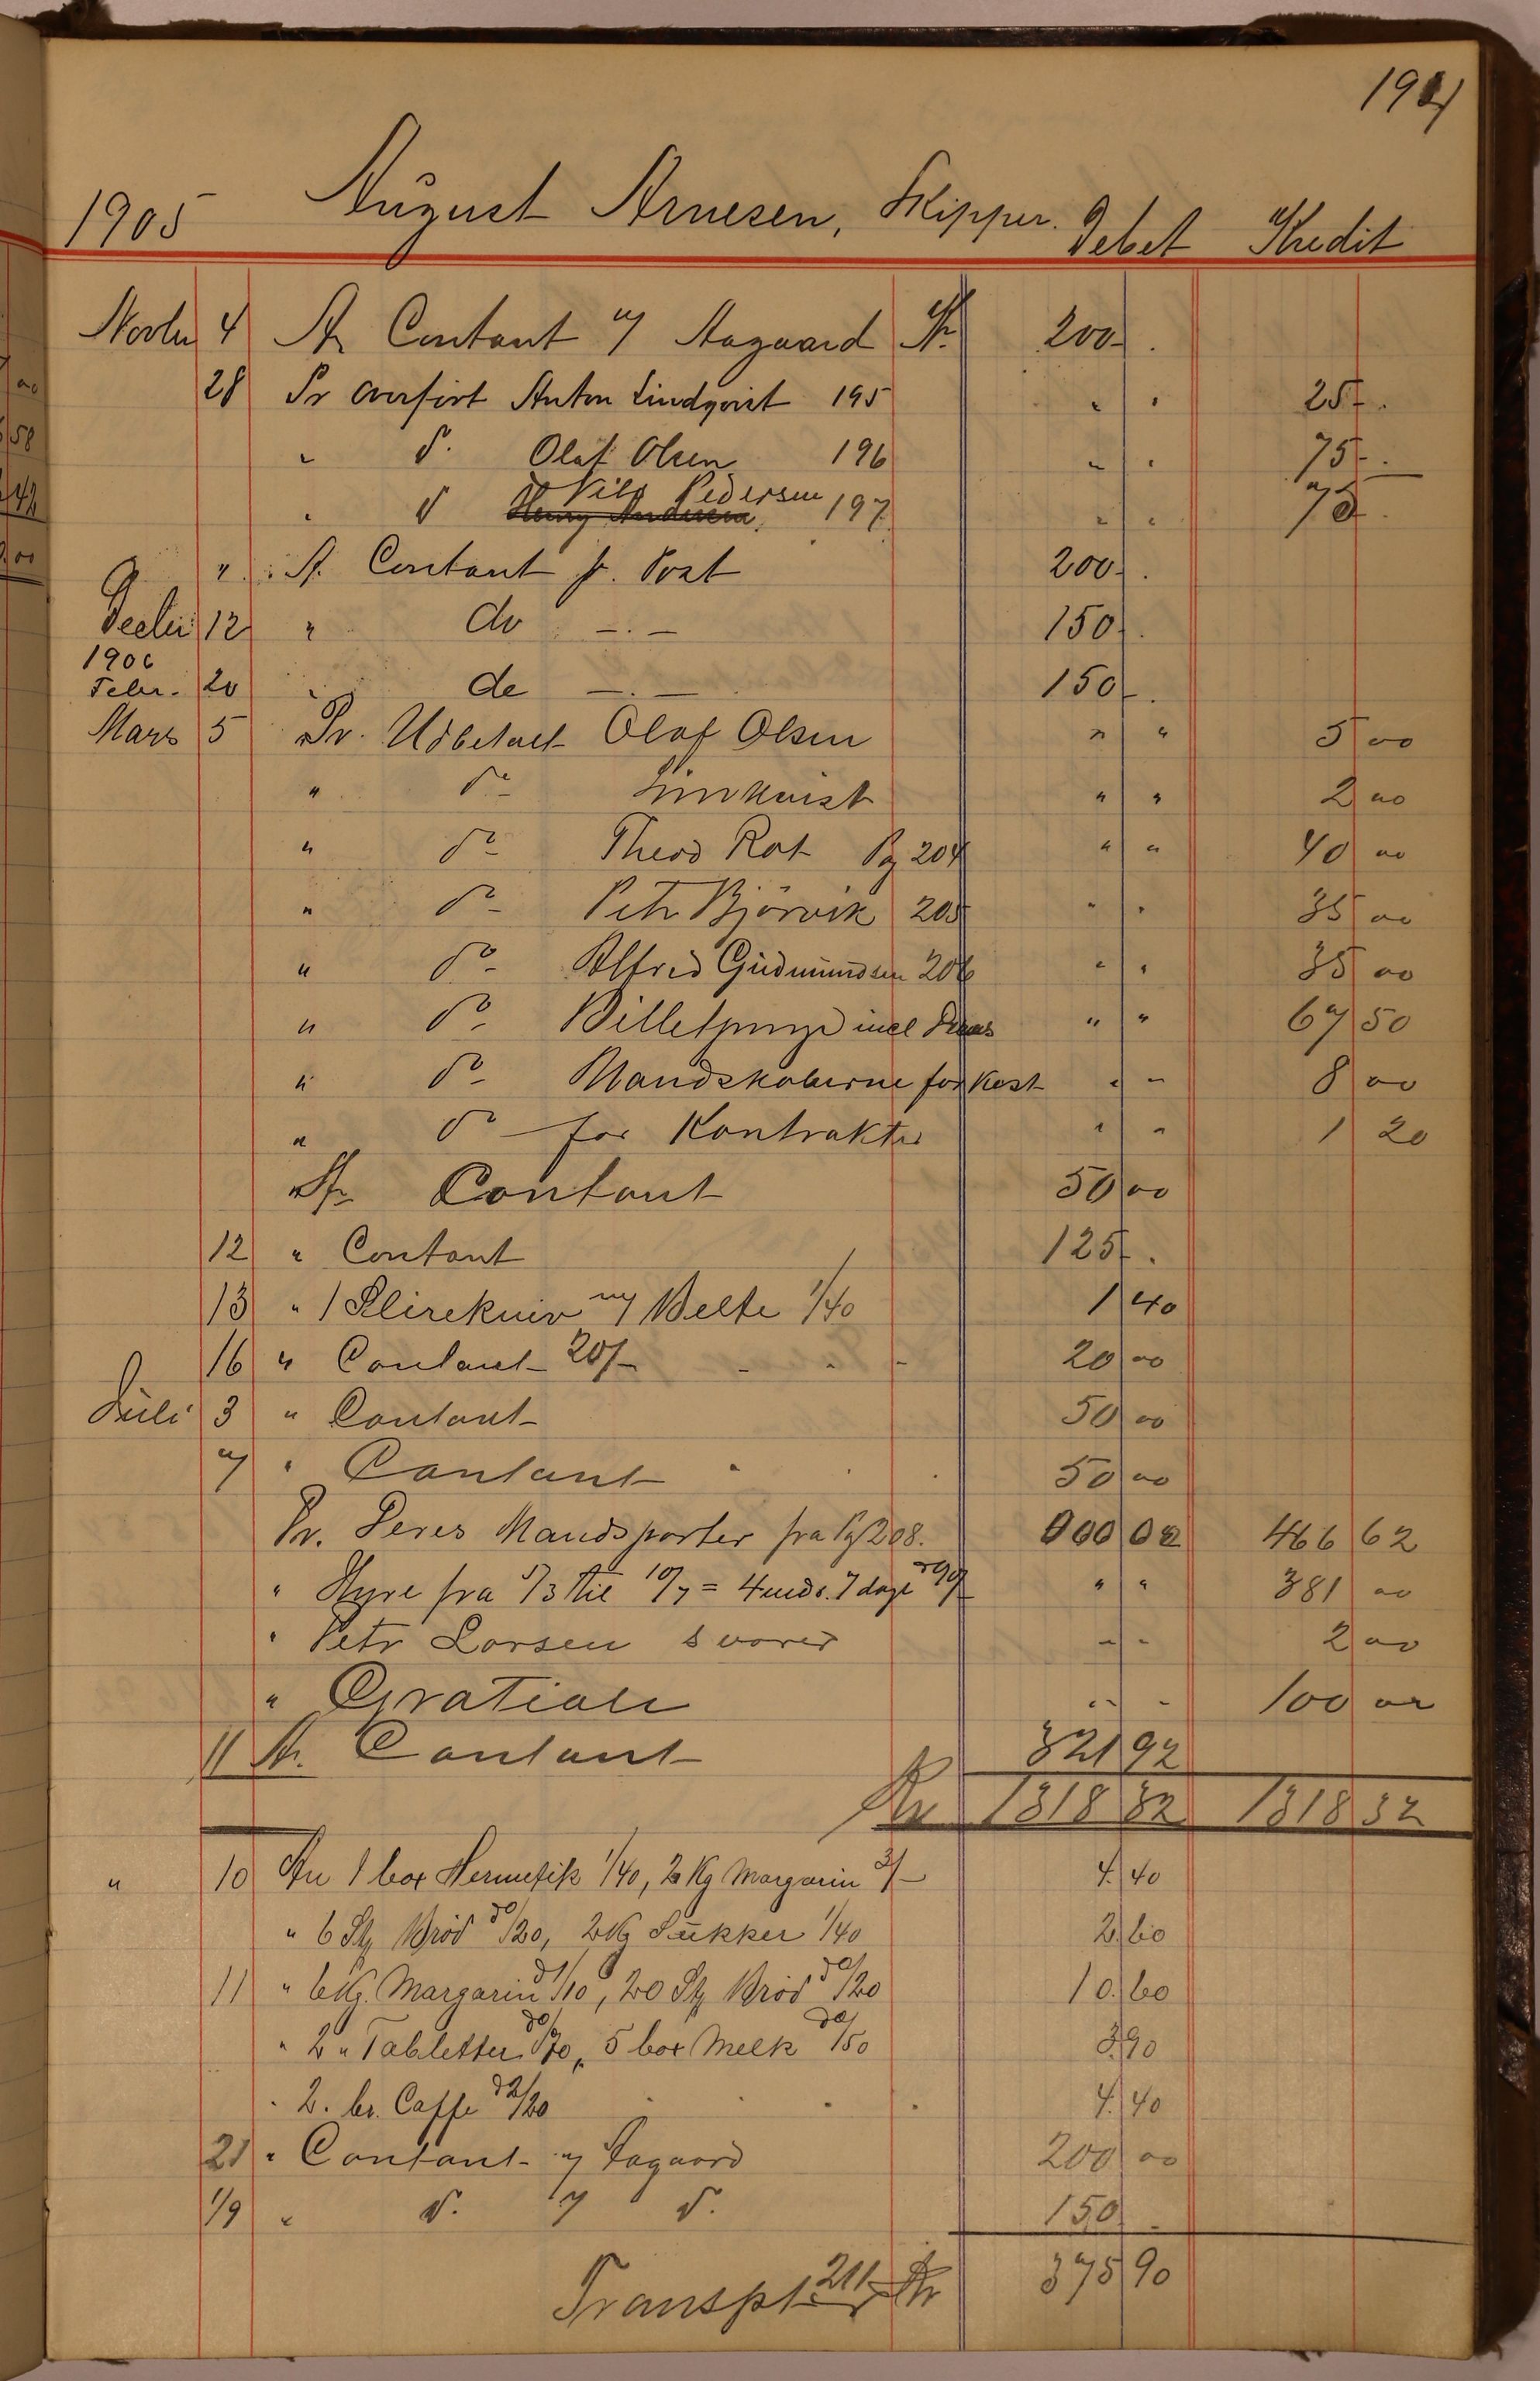 194
1905 August Arnesen, Skipper. Debet Kredit
Novbr 4 An Contant m/ Aagaard Kr. 200 - .
28 Pr overført Anton Lindqvist 195 " " 25 - .
" do. Olaf Olsen 196 " " 75 - .
" do Nils Pedersen 197 " " 75 - .
" An Contant pr. Post 200 - .
Decbr 12 " do — . — 150 - .
1906
Febr. 20 " do — . — 150 - .
Mars 5 Pr. Udbetalt Olaf Olsen " " 5 00
" do - Linkvist " " 2 00
" do - Theod Rot Pg 204 " " 40 00
" do - Petr Bjørvik 205 " " 35 00
" do - Alfred Gudmundsen 206 " " 35 00
" do - Billetpenge incl " " 67 50
" do - Mandskaberne for Kost " " 8 00
" do - for Kontrakter " " 1 20
" An Contant 50 00
12 " Contant 125 - .
13 " 1 Slirekniv m/ Belte 1/40 1 40
16 " Contant 20/- 20 00
Juli 3 " Contant 50 00
7 " Contant 50 00
Pr. Deres Mandsparter fra Pg 208. 000 00 466 62
" Hyre fra 5/3 til 10/7 = 4 mdr. 7 dage à 90/- " " 381 00
" Petr Larsen svarer " " 2 00
" Gratiale " " 100 00
11 An Contant 321 92
Kr 1318 32 1318 32
" 10 An 1 box Hermetik 1/40, 2 Kg Margarin 3/- 4. 40
" 6 Stz Brød do/20, 2 Kg Sukker 1/40 2. 60
11 " 6 Kg. Margarin à 1/10, 20 Stz Brød do/20 10. 60
" 2 " Tabletter do/70, 5 box Melk do/50 3. 90
" 2. br. Caffe à 2/20 4. 40
21 " Contant m/ Aagaard 200 00
1/9 " do. m/ do. 150 - .
Transpt 211 Kr 375 90